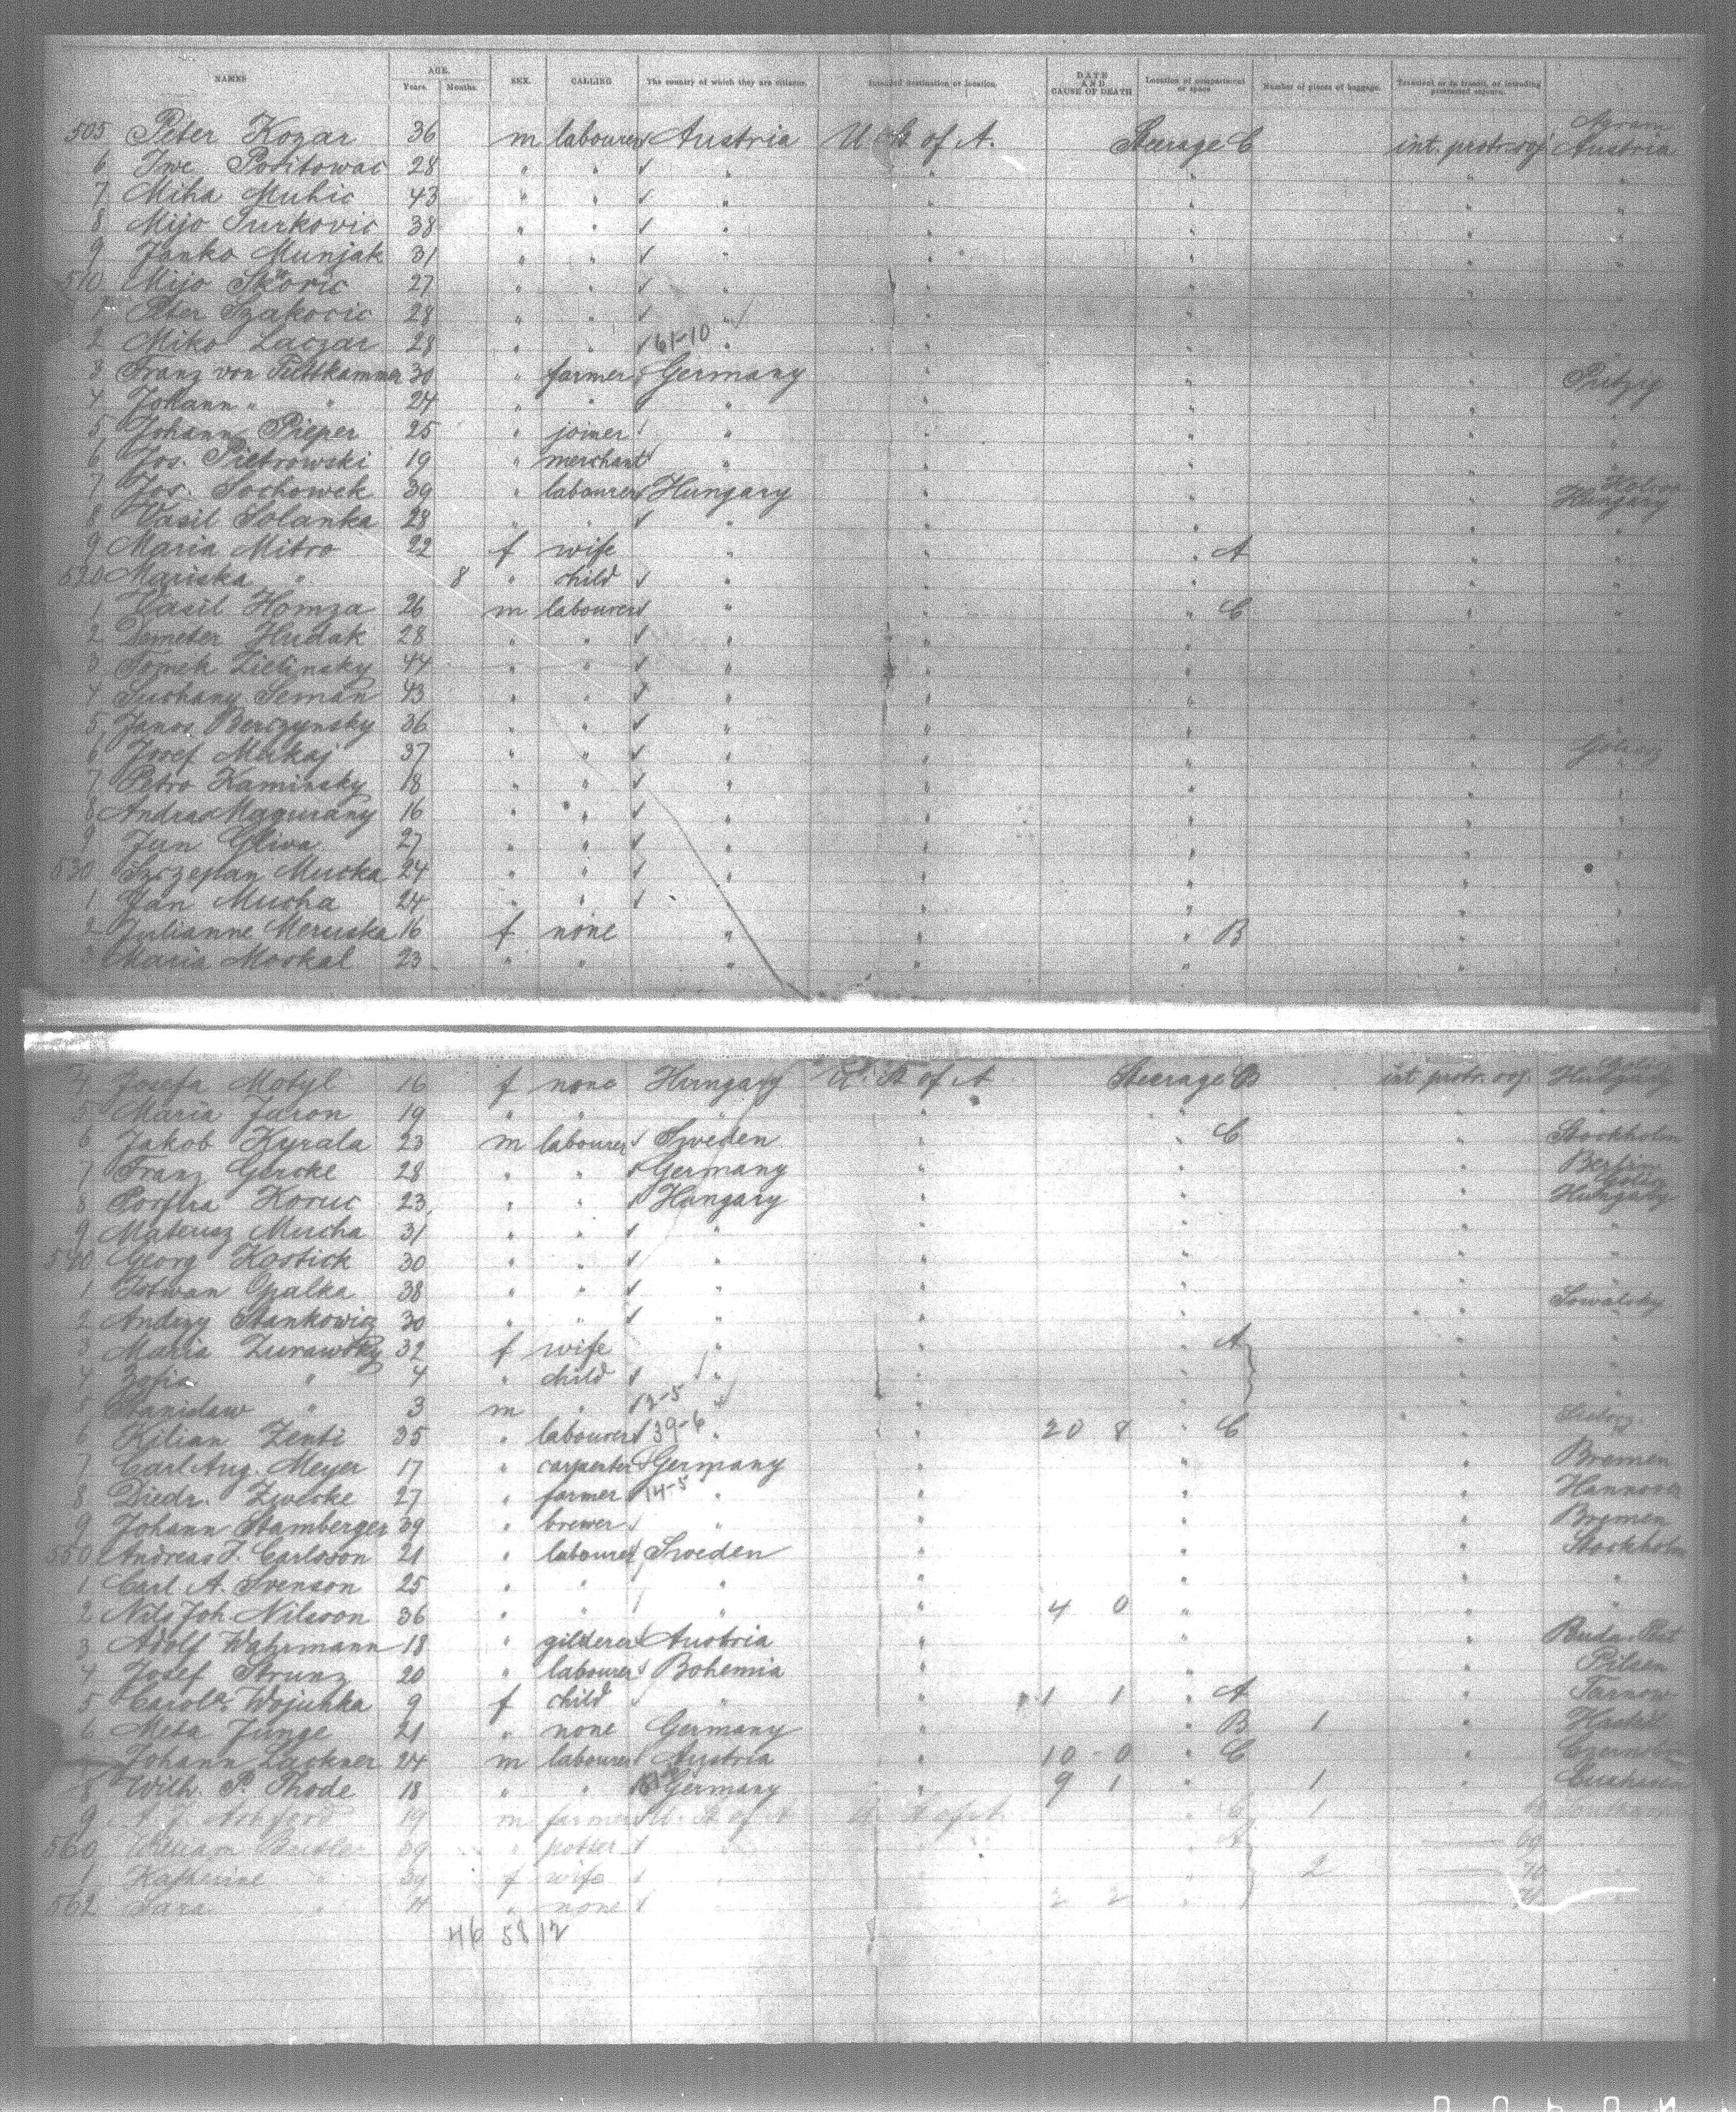 NAMES AGE. Years. Months. SEX. CALLING The country of which they are citizens. Intended destination or location. DATE AND CAUSE OF DEATH Location of compartment or space. Number of pieces of baggage. Transient or in transit, or intending protracted sojourn.
505 Peter Kozar 36 m labourer Austria U St of A. Steerage C int. protr. soj. Agram Austria
6 Iwe 28 " " " " " " "
7 Miha Muhic 43 " " " " " " "
8 Mijo Jurkovic 38 " " " " " " "
9 Janko Munjak 31 " " " " " " "
510 Mijo Skoric 27 " " " " " "
1 Peter Szakocic 28 " " " " " "
2 Miko Laczar 28 " " 61-10 " " " "
3 Franz von 30 " farmer Germany " " " Putzig
4 Johann " " 24 " " " " " "
5 Johann Pieper 25 " joiner " " " " "
6 Jos. Pietrowski 19 " merchant " " " " "
7 Jos. Sochowek 39 " labourer Hungary " " " Hungary
8 Vasil Solanka 28 " " " " " " "
9 Maria Mitro 22 f wife " " " A " "
520 Mariska " 8 " child " " " " "
1 Vasil Homza 26 m labourer " " " C " "
2 Demeter Hudak 28 " " " " " " "
3 Tomek Zielinsky 44 " " " " " " "
4 Suchany Seman 43 " " " " " " "
5 Janos Berczynsky 36 " " " " " " "
6 Josef Makaj 37 " " " " " "
7 Petro Kaminsky 18 " " " " " " "
8 Andras Magurany 16 " " " " " " "
9 Jan Gliva 27 " " " " " " "
530 Szczepan Mucka 24 " " " " " " "
1 Jan Mucha 24 " " " " " " "
2 Julianne Meruska 16 f none " " " B " "
3 Maria Moskal 23 " " " " " " "
4 Josefa Motyl 16 f none Hungary U. St of A Steerage B int protr. soj. Hungary
5 Maria Jaron 19 " " " " " " "
6 Jakob Kyrala 23 m labourer Sweden " " C " Stockholm
7 Franz Gercke 28 " " Germany " " " Berlin
8 Koruc 23 " " Hungary " " " Hungary
9 Mateusz Mucha 31 " " " " " " "
540 Georg Kostick 30 " " " " " " "
1 Istwan Opalka 38 " " " " " "
2 Andrzy Stankowicz 30 " " " " " "
3 Maria Zurawsky 32 f wife " " " A " "
4 Zofia " 4 " child " " " " "
5 Stanislaw " 3 m " 12-5 " " " " "
6 Kilian Zenti 35 " labourer 39-6 " " 20 8 " C "
7 Carl Aug. Meyer 17 " carpenter Germany " " " Bremen
8 Diedr. Zwecke 27 " farmer 14-5 " " " " Hannover
9 Johann Stamberger 39 " brewer " " " " Bremen
550 Andreas J. Carlsson 21 " labourer Sweden " " " Stockholm
1 Carl A. Svenson 25 " " " " " " "
2 Nils Joh. Nilsson 36 " " " " 4 0 " " "
3 Adolf Wahrmann 18 " gilderer Austria " " " Buda-Pest
4 Josef Strunz 20 " labourer Bohemia " " " Pilsen
5 Carola Wojuhka 9 f child " " 1 1 " A " Tarnow
6 Meta Junge 21 " none Germany " " B 1 "
Johann Lackner 24 m labourer Austria " 10-0 " C "
8 Wilh. P. Thode 18 " " Germany " 9 1 " 1 " Cuxhaven
9 A. J. 19 m farmer U. St of A U. St of A. " C 1
560 William Butler 39 " potter " " A 69
1 Katherine " 34 f wife " " 2 70
562 Sara " 4 " none " 2 2 "
46 58 12